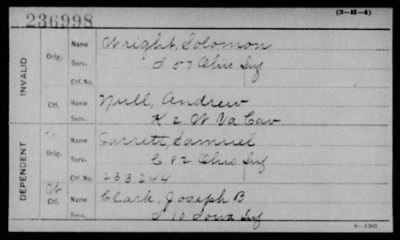 (3-H-4)
236998
INVALID
Orig. Name Wright, Solomon
Serv. I 57 Ohio Inf
Ctf. No.
Ctf. Name Null, Andrew
Serv. K 2 W Va Cav
DEPENDENT
Orig. Name Garrett, Samuel
Serv. C 82 Ohio Inf
Ctf. No. 233244
Ctf. Name Clark, Joseph B
Serv. I 10 Iowa Inf